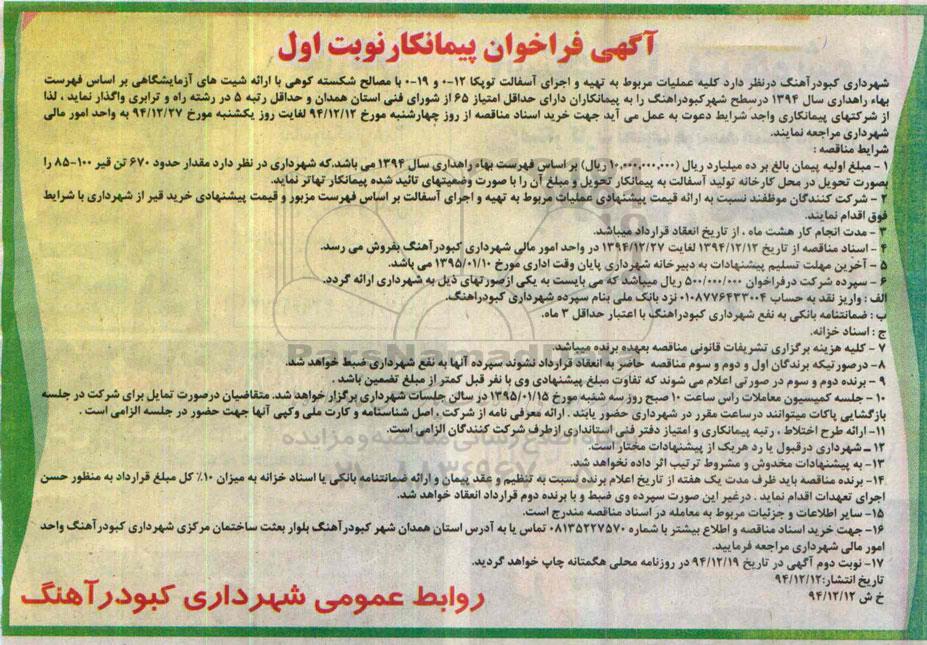 آگهی فراخوان پیمانکار نوبت اول
شهرداری کبودرآهنگ درنظر دارد کلیه عملیات مربوط به تهیه و اجرای آسفالت توپکا ۱۲-۰ و ۱۹-۰ با مصالح شکسته کوهی با ارائه شیت های آزمایشگاهی بر اساس فهرست
بهاء راهداری سال ۱۳۹۴ درسطح شهرکبودراهنگ را به پیمانکاران دارای حداقل امتیاز ۶۵ از شورای فنی استان همدان و حداقل رتبه ۵ در رشته راه و ترابری واگذار نماید ، لذا
از شرکتهای پیمانکاری واجد شرایط دعوت به عمل می آید جهت خرید اسناد مناقصه از روز چهارشنبه مورخ ۹۴/۱۲/۱۲ لغایت روز یکشنبه مورخ ۹۴/۱۲/۲۷ به واحد امور مالی
شهرداری مراجعه نمایند.
شرایط مناقصه :
۱ - مبلغ اولیه پیمان بالغ بر ده میلیارد ریال (۱۰,۰۰۰,۰۰۰,۰۰۰ ریال) بر اساس فهرست بهاء راهداری سال ۱۳۹۴ می باشد.که شهرداری در نظر دارد مقدار حدود ۶۷۰ تن قیر ۱۰۰-۸۵ را
بصورت تحویل در محل کارخانه تولید آسفالت به پیمانکار تحویل و مبلغ آن را با صورت وضعیتهای تائید شده پیمانکار تهاتر نماید.
۲ - شرکت کنندگان موظفند نسبت به ارائه قیمت پیشنهادی عملیات مربوط به تهیه و اجرای آسفالت بر اساس فهرست مزبور و قیمت پیشنهادی خرید قیر از شهرداری با شرایط
فوق اقدام نمایند.
۳ - مدت انجام کار هشت ماه ، از تاریخ انعقاد قرارداد میباشد.
۴ - اسناد مناقصه از تاریخ ۱۳۹۴/۱۲/۱۲ لغایت ۱۳۹۴/۱۲/۲۷ در واحد امور مالی شهرداری کبودرآهنگ بفروش می رسد.
۵ - آخرین مهلت تسلیم پیشنهادات به دبیرخانه شهرداری پایان وقت اداری مورخ ۱۳۹۵/۰۱/۱۰ می باشد.
۶ - سپرده شرکت درفراخوان ۵۰۰/۰۰۰/۰۰۰ ریال میباشد که می بایست به یکی ازصورتهای ذیل به شهرداری ارائه گردد.
الف : واریز نقد به حساب ۰۱۰۸۷۷۶۴۳۳۰۰۴ نزد بانک ملی بنام سپرده شهرداری کبودراهنگ.
ب : ضمانتنامه بانکی به نفع شهرداری کبودراهنگ با اعتبار حداقل ۳ ماه.
ج : اسناد خزانه.
۷ - کلیه هزینه برگزاری تشریفات قانونی مناقصه بعهده برنده میباشد.
۸- درصورتیکه برندگان اول و دوم و سوم مناقصه حاضر به انعقاد قرارداد نشوند سپرده آنها به نفع شهرداری ضبط خواهد شد.
۹ - برنده دوم و سوم در صورتی اعلام می شوند که تفاوت مبلغ پیشنهادی وی با نفر قبل کمتر از مبلغ تضمین باشد .
۱۰ - جلسه کمیسیون معاملات راس ساعت ۱۰ صبح روز سه شنبه مورخ ۱۳۹۵/۰۱/۱۵ در سالن جلسات شهرداری برگزار خواهد شد. متقاضیان درصورت تمایل برای شرکت در جلسه
بازگشایی پاکات میتوانند درساعت مقرر در شهرداری حضور یابند . ارائه معرفی نامه از شرکت ، اصل شناسنامه و کارت ملی وکپی آنها جهت حضور در جلسه الزامی است .
۱۱- ارائه طرح اختلاط ، رتبه پیمانکاری و امتیاز دفتر فنی استانداری ازطرف شرکت کنندگان الزامی است.
۱۲ ـ شهرداری درقبول یا رد هریک از پیشنهادات مختار است.
۱۳- به پیشنهادات مخدوش و مشروط ترتیب اثر داده نخواهد شد.
۱۴- برنده مناقصه باید ظرف مدت یک هفته از تاریخ اعلام برنده نسبت به تنظیم و عقد پیمان و ارائه ضمانتنامه بانکی یا اسناد خزانه به میزان ۱۰٪ کل مبلغ قرارداد به منظور حسن
اجرای تعهدات اقدام نماید . درغیر این صورت سپرده وی ضبط و با برنده دوم قرارداد انعقاد خواهد شد.
۱۵- سایر اطلاعات و جزئیات مربوط به معامله در اسناد مناقصه مندرج است.
۱۶- جهت خرید اسناد مناقصه و اطلاع بیشتر با شماره ۰۸۱۳۵۲۲۷۵۷۰ تماس یا به آدرس استان همدان شهر کبودرآهنگ بلوار بعثت ساختمان مرکزی شهرداری کبودرآهنگ واحد
امور مالی شهرداری مراجعه فرمایید.
۱۷- نوبت دوم آگهی در تاریخ ۹۴/۱۲/۱۹ در روزنامه محلی هگمتانه چاپ خواهد گردید.
تاریخ انتشار:۹۴/۱۲/۱۲
خ ش ۹۴/۱۲/۱۲
روابط عمومی شهرداری کبودرآهنگ